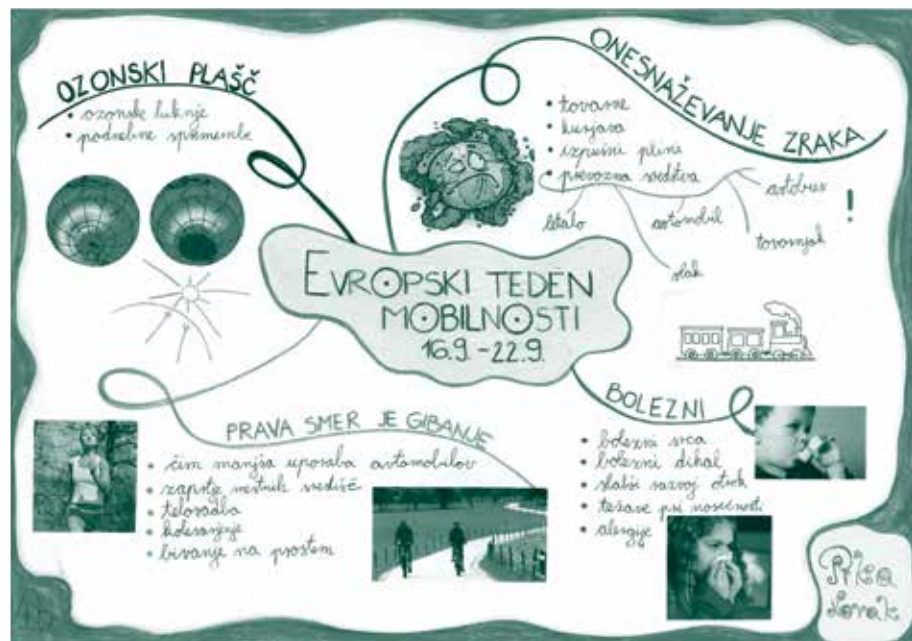 OZONSKI PLAŠČ
• ozonske luknje
• podnebne spremembe
ONESNAŽEVANJE ZRAKA
• tovarne
• kurjava
• izpušni plini
• prevozna sredstva
letalo
vlak
avtomobil
tovornjak
avtobus
!
EVROPSKI TEDEN
MOBILNOSTI
16.9.-22.9.
PRAVA SMER JE GIBANJE
• čim manjša uporaba avtomobilov
• zaprtje mestnih središč
• telovadba
• kolesarjenje
• bivanje na prostem
BOLEZNI
• bolezni srca
• bolezni dihal
• slabši razvoj otrok
• težave pri nosečnosti
• alergije
Pika